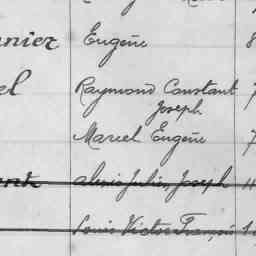 nier Eugène 8
el Raymond Constant 7
Joseph
Marcel Eugène 7
Alexis Julien Joseph 11
Louis Victor François 1